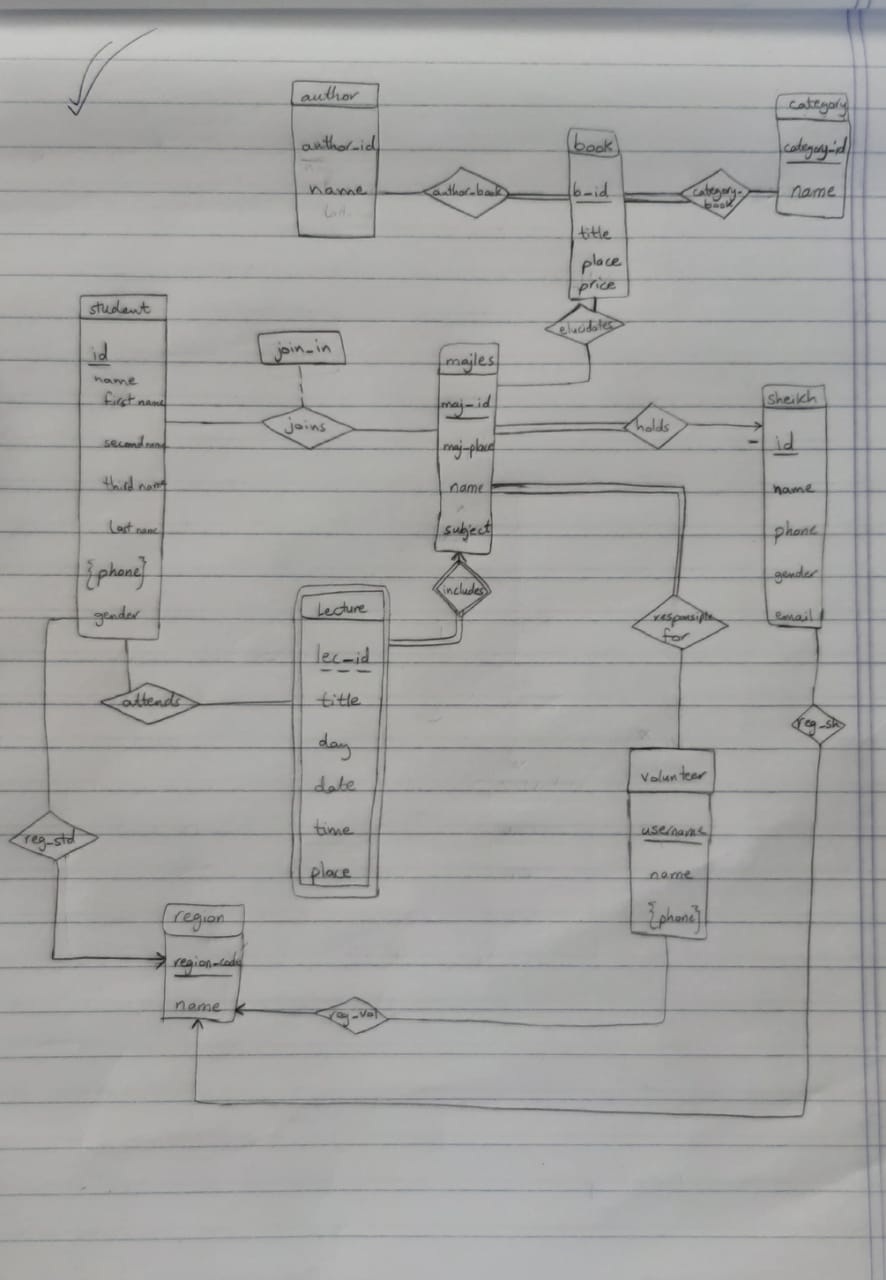 author
author-id
name
author-book
book
b-id
title
place
price
category-book
category
category-id
name
student
id
name
first name
second name
third name
last name
{phone}
gender
join_in
joins
elucidates
majles
maj-id
maj-place
name
subject
holds
Sheikh
id
name
phone
gender
email
includes
Lecture
lec-id
title
day
date
time
place
attends
responsible
for
reg-sh
volunteer
username
name
{phone}
reg-std
region
region-code
name
reg-vol